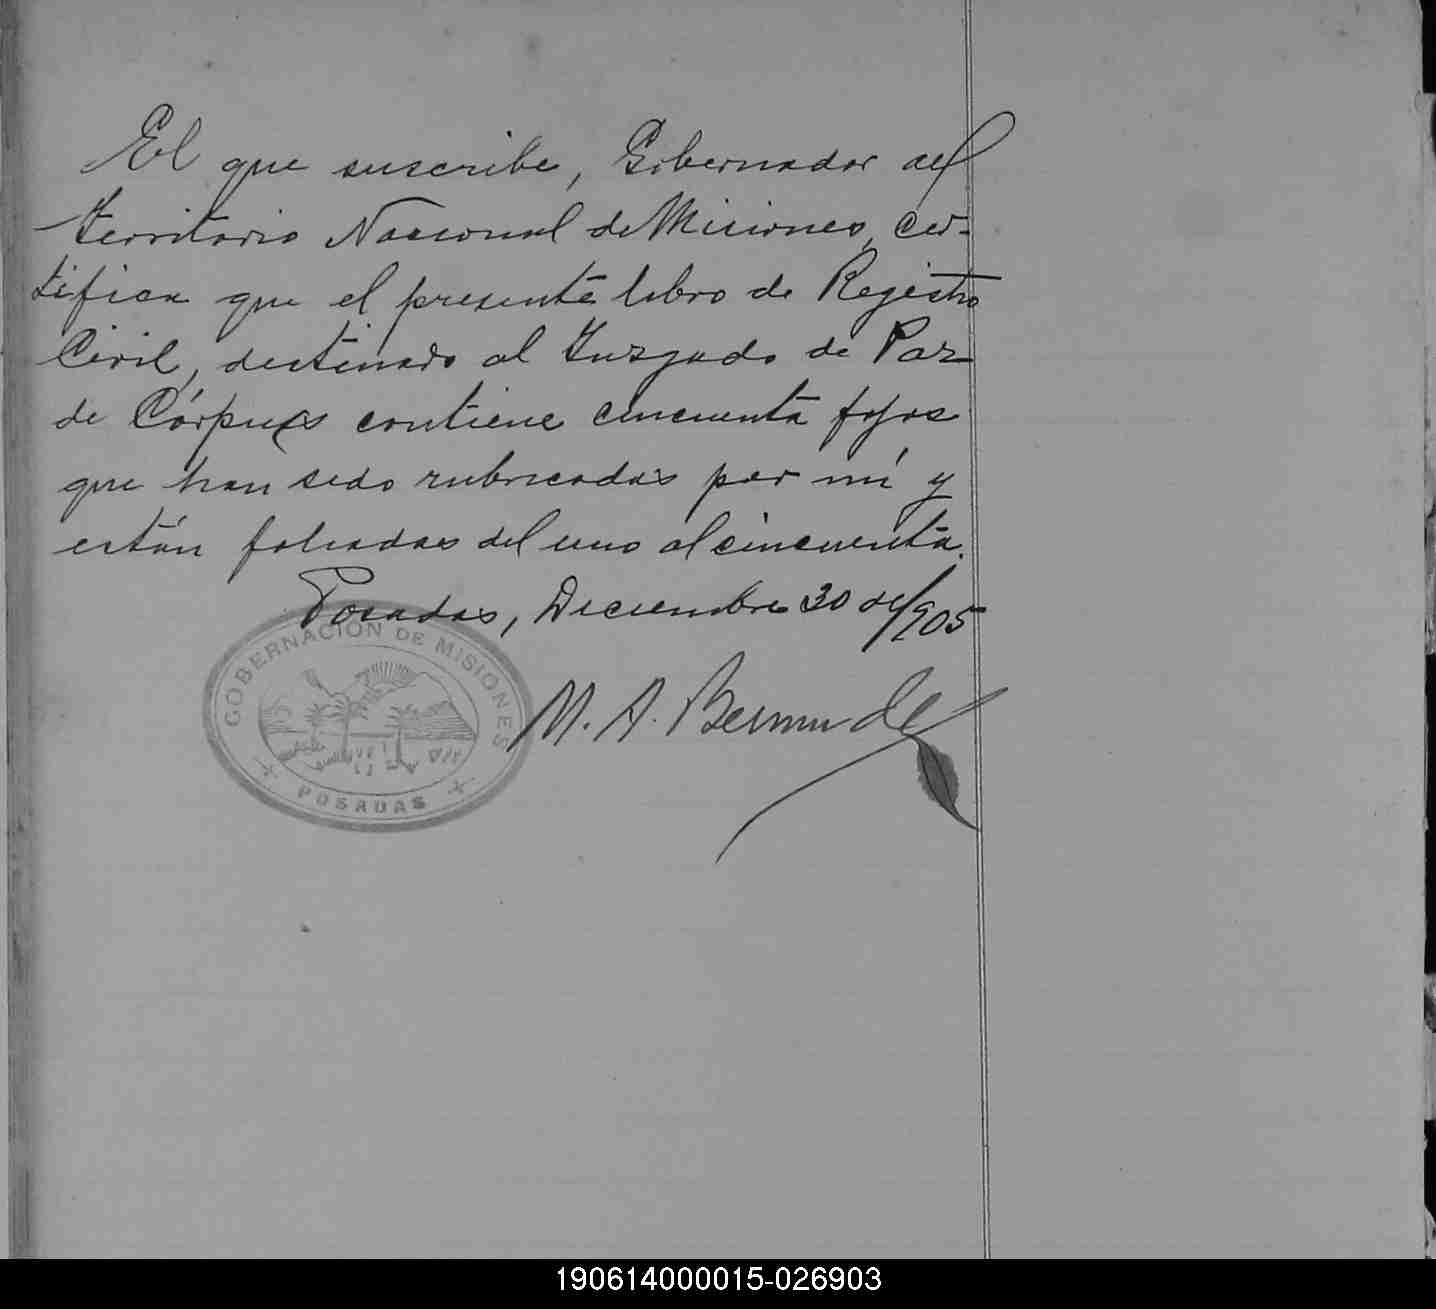 El que suscribe, Gobernador del
Territorio Nacional de Misiones, cer-
tifica que el presente libro de Registro
Civil, destinado al Juzgado de Paz
de Córpus contiene cincuenta fojas
que han sido rubricadas por mí y
están foliadas del uno al cincuenta.
Posadas, Diciembre 30 de/905
GOBERNACIÓN DE MISIONES
POSADAS
M. A. Bermudez
190614000015-026903